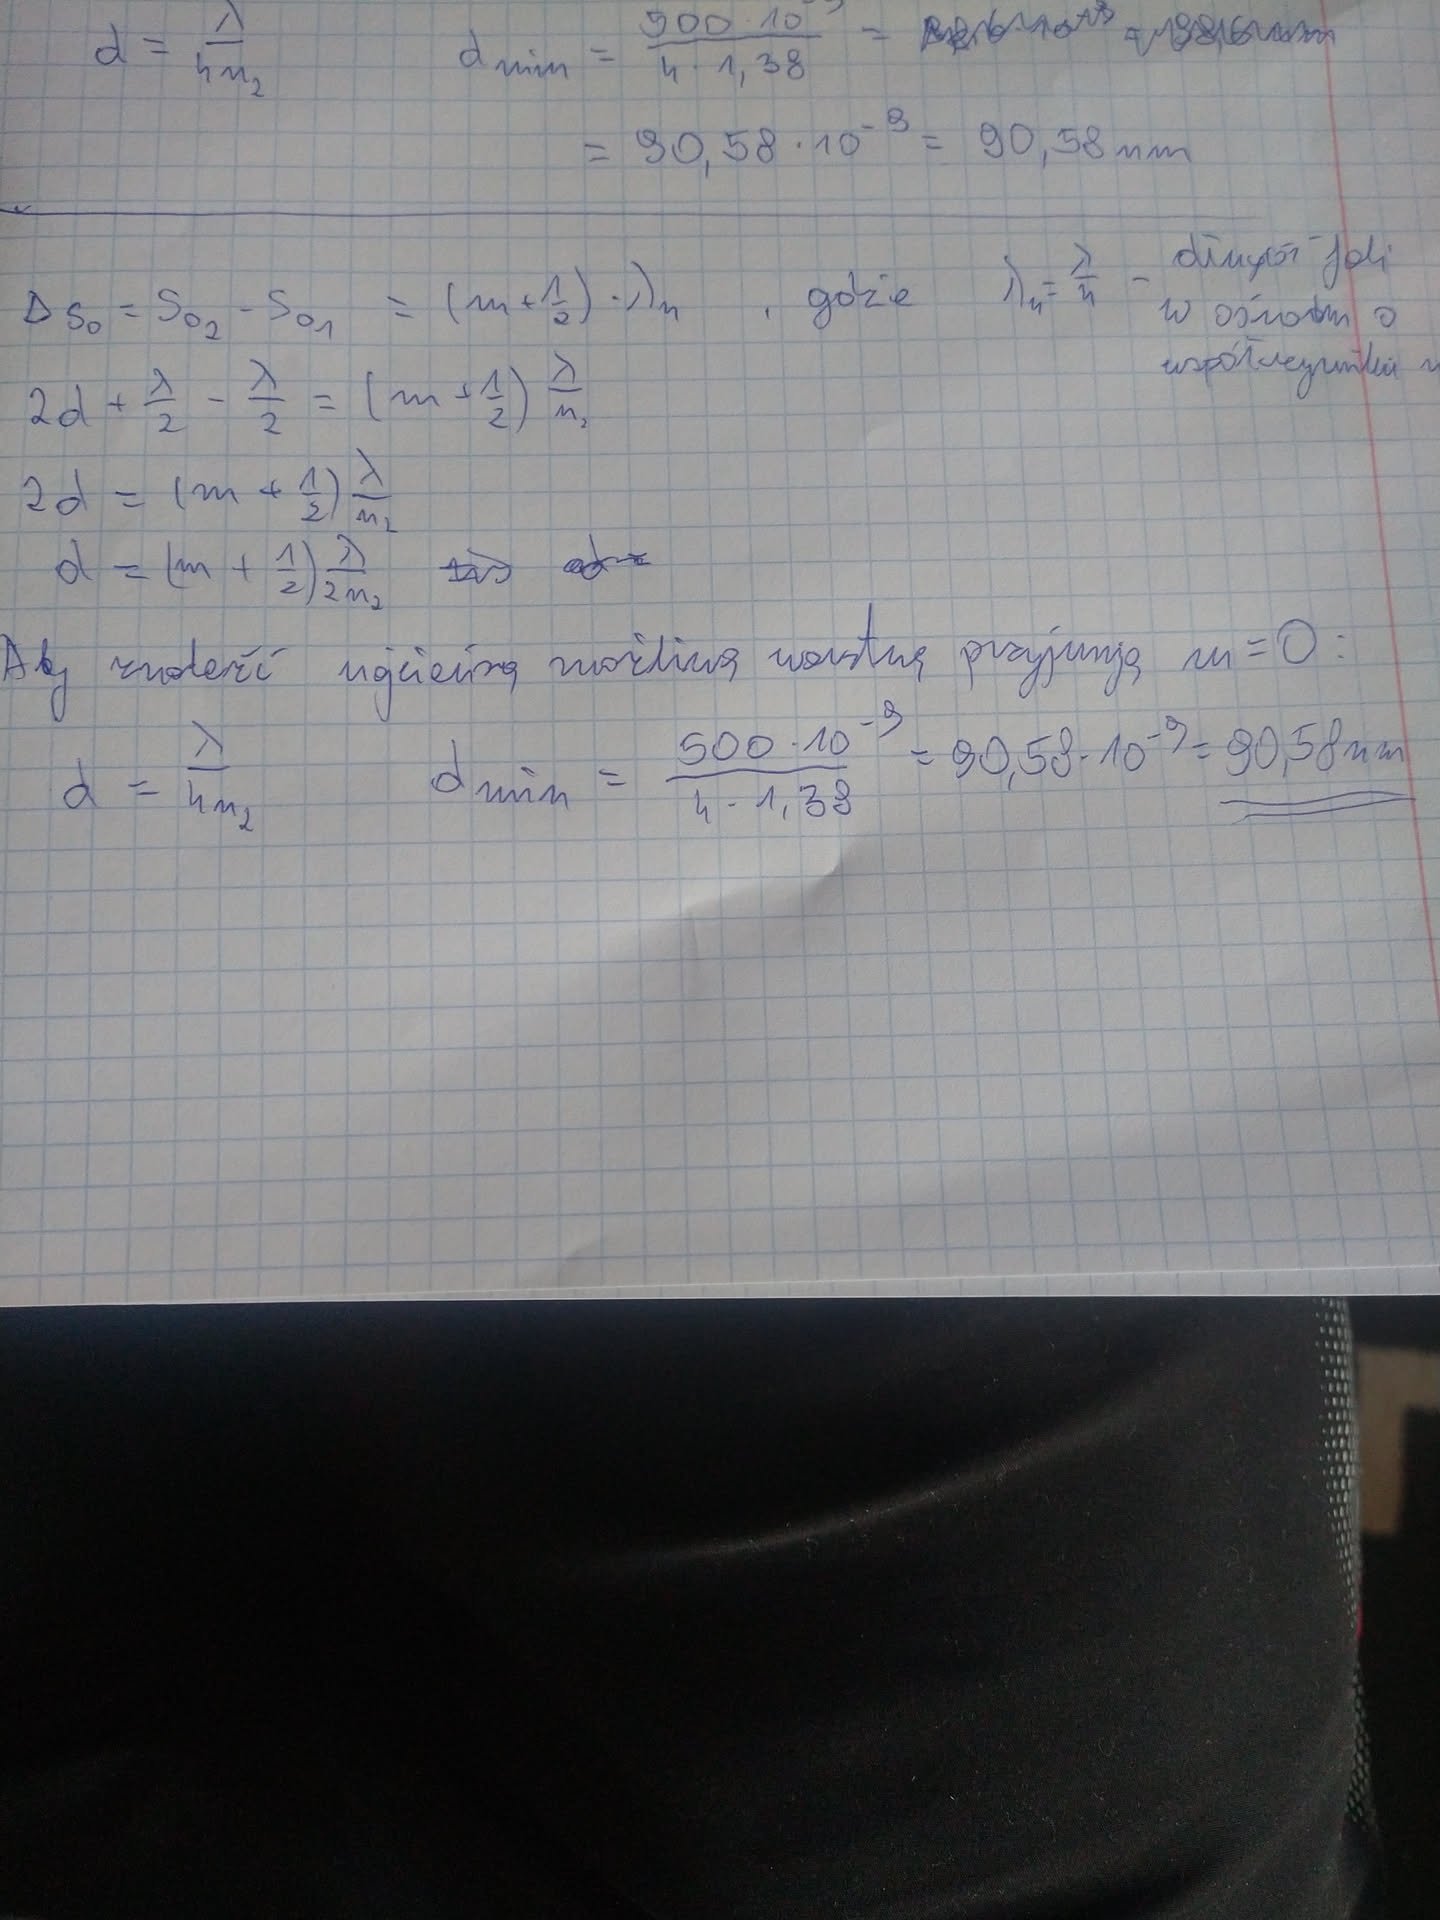 d = λ/4n₂ d min = 500·10⁻⁹/4·1,38 =
= 90,58·10⁻⁹ = 90,58 nm
Δs₀ = S₀₂ - S₀₁ = (m+1/2)·λₙ , gdzie λₙ = λ/n - długość fali
w ośrodku o
współczynniku n
2d + λ/2 - λ/2 = (m+1/2) λ/n₂
2d = (m + 1/2) λ/n₂
d = (m + 1/2) λ/2n₂
Aby znaleźć najcieńszą możliwą warstwę przyjmuję m=0:
d = λ/4n₂ d min = 500·10⁻⁹/4·1,38 = 90,58·10⁻⁹ = 90,58 nm